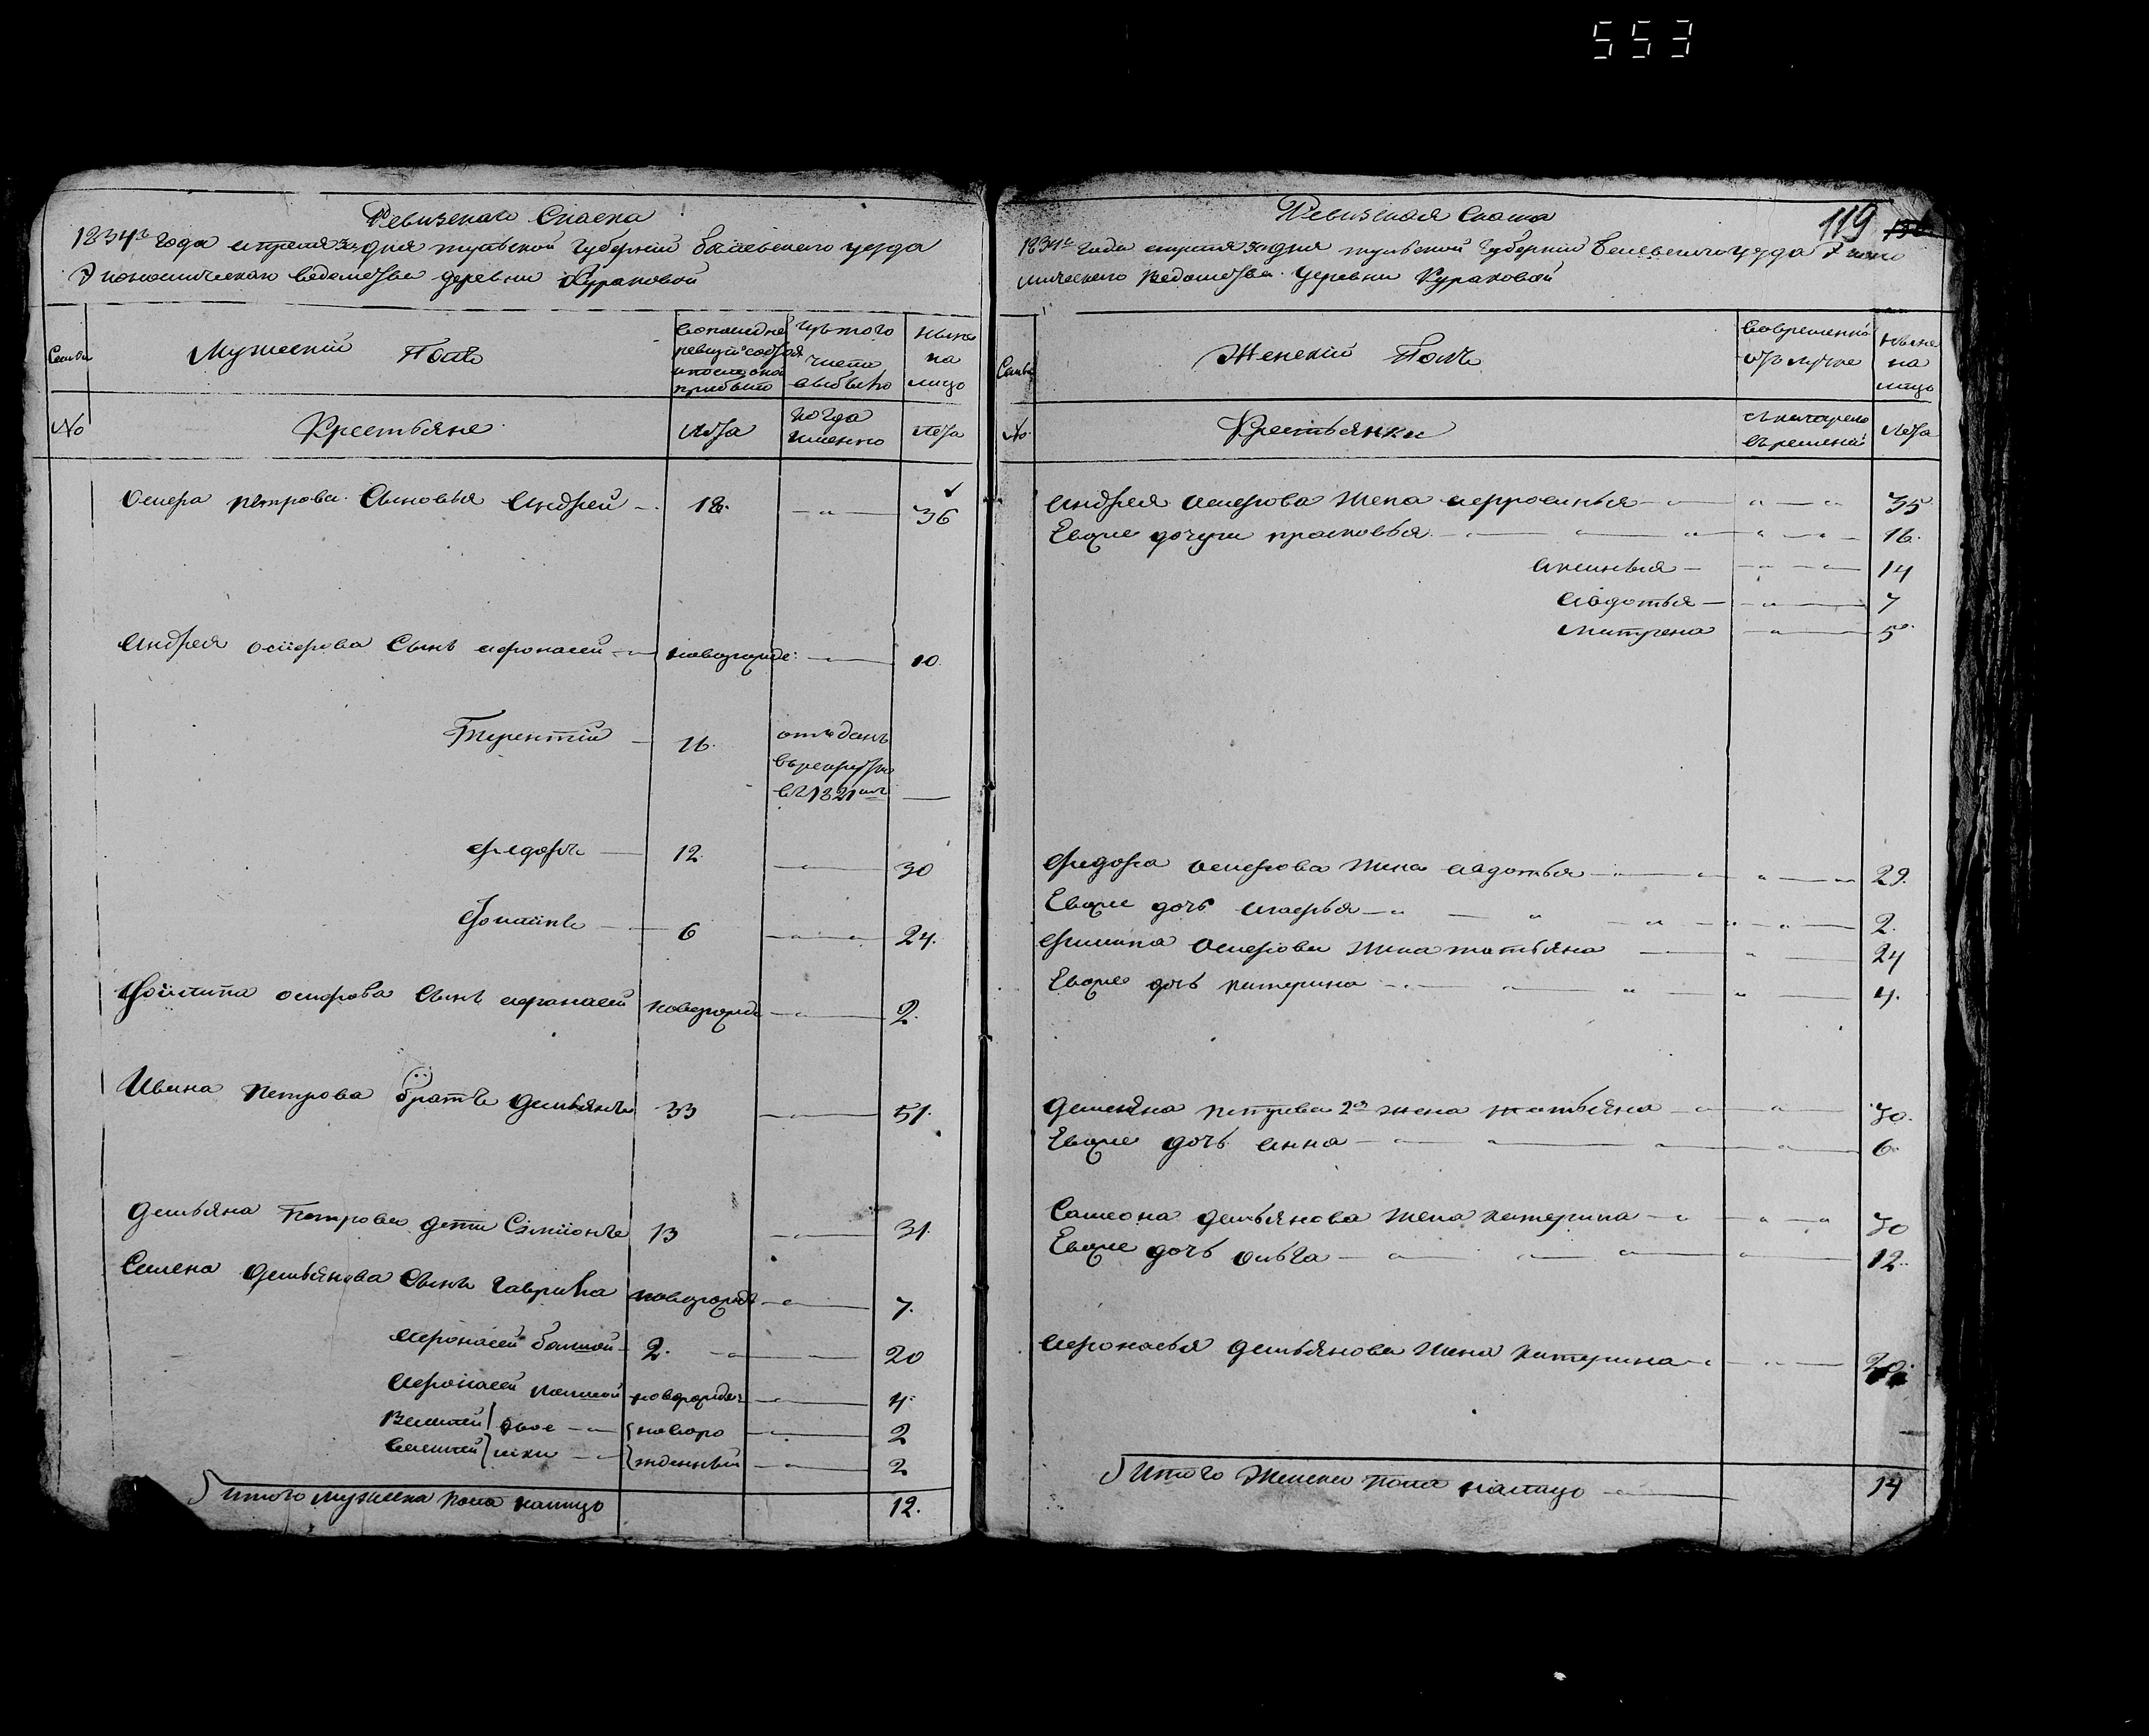 553
Ревизская Скаска
1834го Года апреля дня тульской Губернии Белевского уезда
Экономическаго Ведомства деревни Кураковой
Семьи
Мужеский Полъ
Вопоследнею
ревизию состоя
ло и после оной
прибыло
Изъ того
числа
выбыло
Ныне
на
лицо
№
Крестьяне
Лета
когда
именно
Лета
Осипа Петрова Сыновья Андрей 18. 36
Андрея осипова Сынъ афонасей новорожде: 10.
Терентий 16. отъданъ
врекруты
въ 1821мъ
Федоръ 12. 30
Филипъ 6 24.
Филипа осипова Сынъ афонасей новорожд 2.
Ивана Петрова братъ Демьянъ 33 51.
Демьяна Петрова дети Симионъ 13 31.
Семена Демьянова Сынъ Гаврила новорожд 7.
Афонасей большой 2. 20
Афонасей меншой новорожде: 4.
Василей двое новоро 2
Василей шки жденный 2
Итого мужеска пола налицо 12.
119
Ревизская Скаска
1834го Года апреля дня тульской Губернии Белевского уезда Эконо
мическаго Ведомства деревни Кураковой
Семьи
Женский Полъ
Вовременной
отлучке
Ныне
на
лицо
№
Крестьянки
съ котораго
времени
Лета
Андрея Осипова жена афросинья 35
Евоже дочери прасковья 16.
аксинья 14
авдотья 7
матрена 5
Федора Осипова жена авдотья 29.
Евоже дочь марья 2.
Филипа Осипова жена татьяна 24
Евоже дочь катерина 4.
Демьяна петрова 2я жена татьяна 30.
Евоже дочь анна 6
Самиона демьянова жена катерина 30
Евоже дочь ольга 12.
Афонасья демьянова жена катерина
Итого Женска пола налицо 14